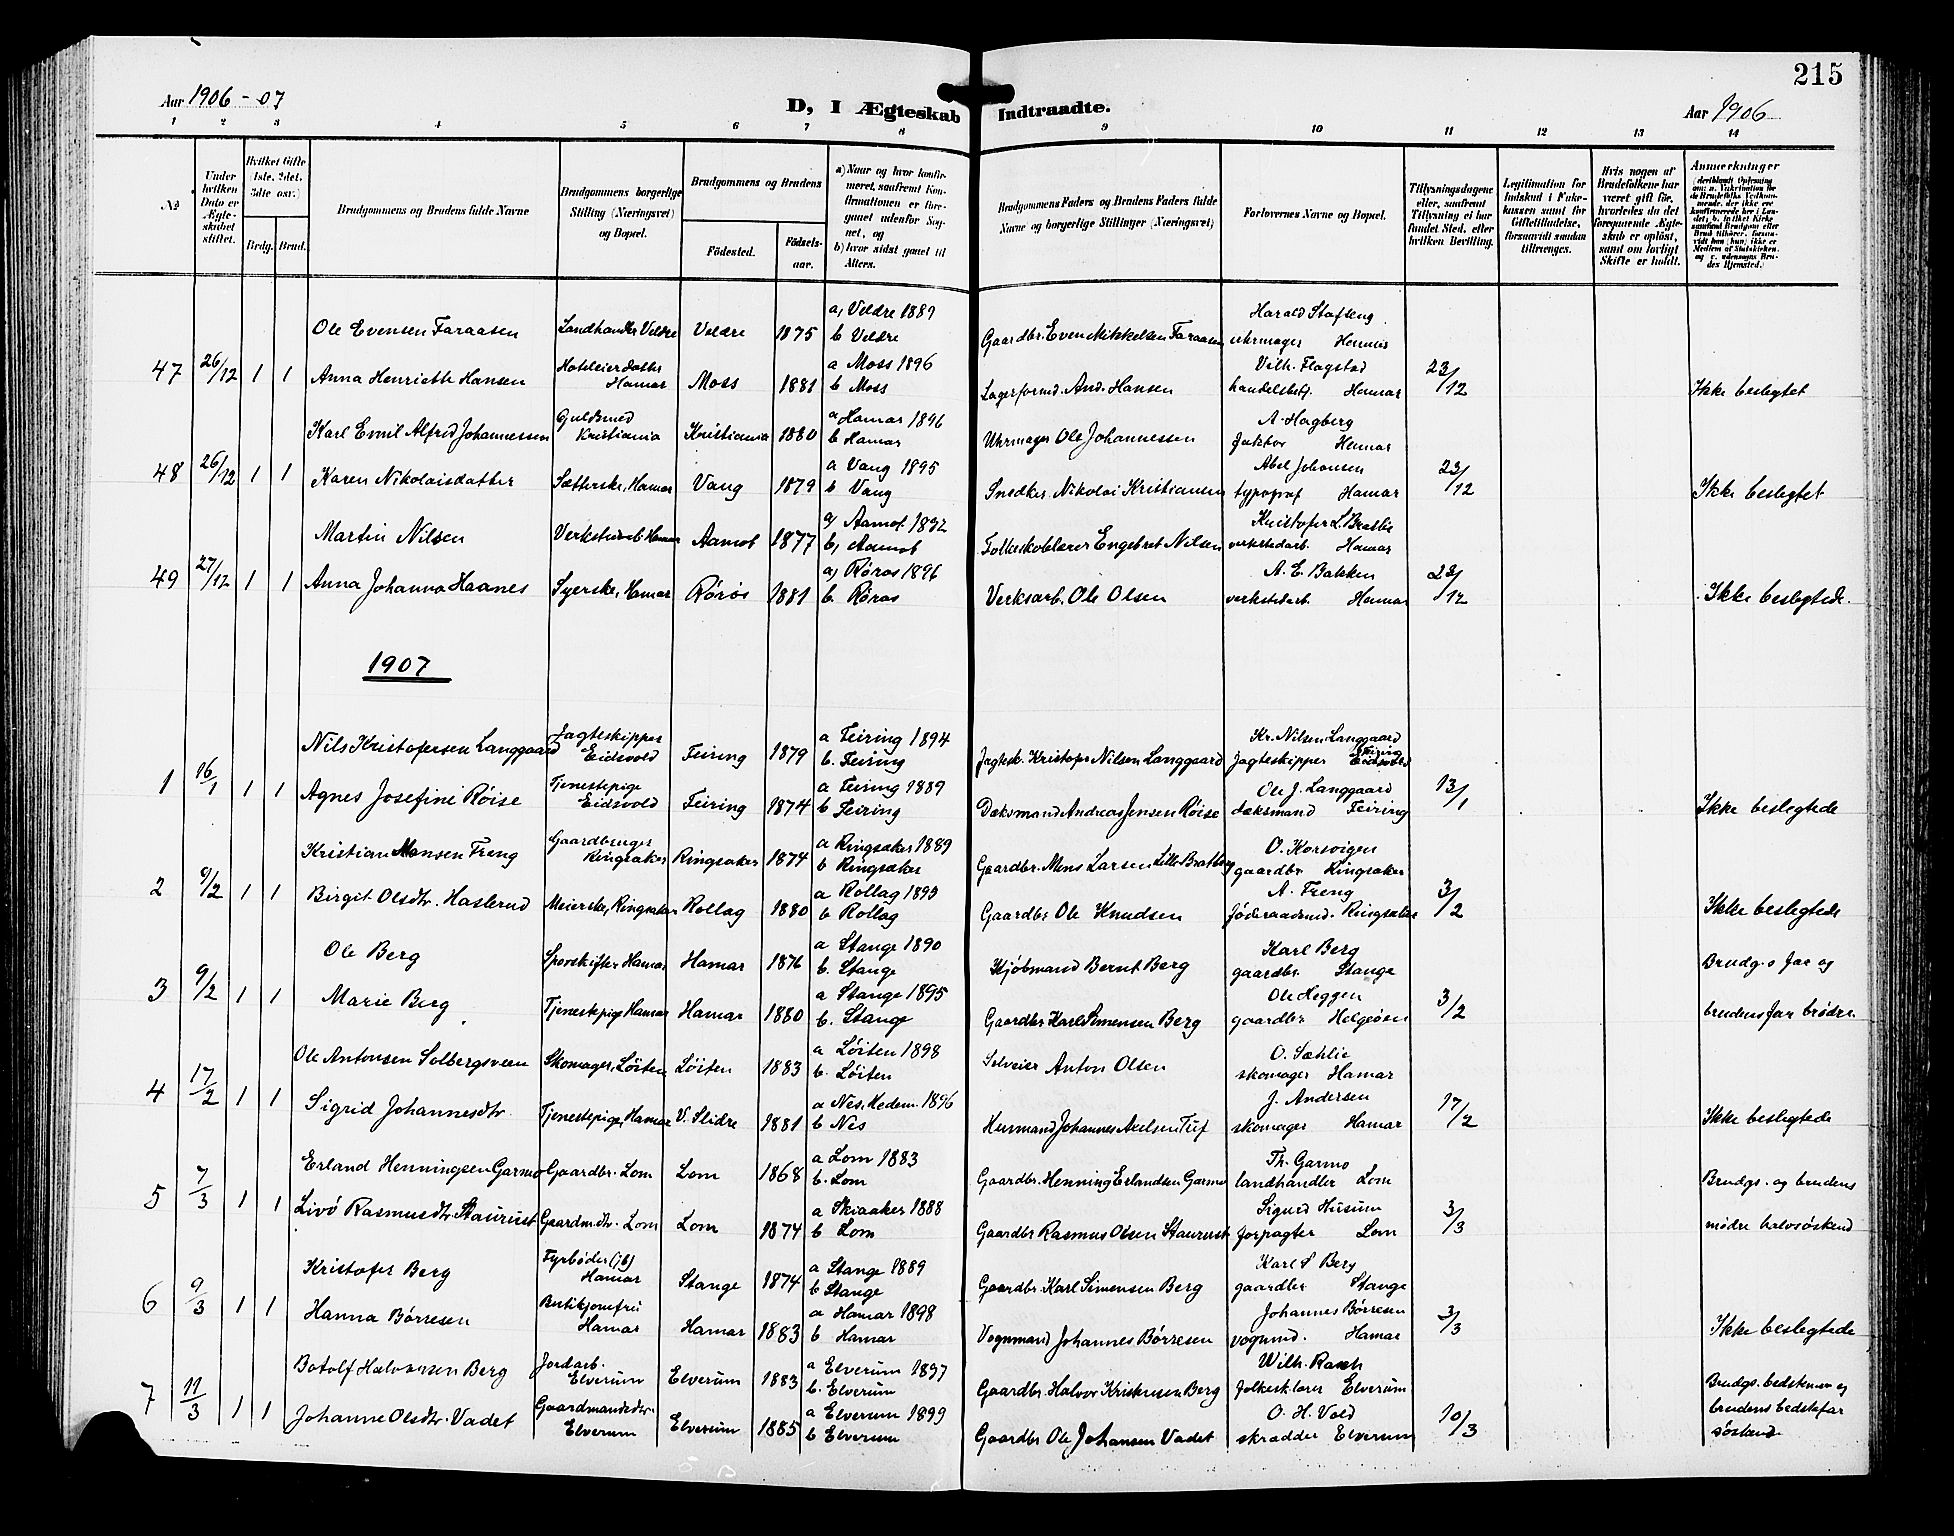 215
Aar 1906-07
D, I Ægteskab Indtraadte.
Aar 1906
1 2 3 4 5 6 7 8 9 10 11 12 13 14
No
Under hvilken Dato er Ægteskabet stiftet.
Hvilket Gifte (1ste, 2det, 3die osv.)
Brdg. Brud.
Brudgommens og Brudens fulde Navne
Brudgommens borgerlige Stilling (Næringsvei) og Bopæl.
Brudgommens og Brudens
Födested. Födselsaar.
a) Naar og hvor konfirmeret, saafremt Konfirmationen er foregaaet udenfor Sognet, og
b) hvor sidst gaaet til Alters.
Brudgommens Faders og Brudens Faders fulde Navne og borgerlige Stillinger (Næringsvei)
Forlovernes Navne og Bopæl.
Tillysningsdagene eller, saafremt Tillysning ei har fundet Sted, efter hvilken Bevilling.
Legitimation for Indskud i Enkekassen samt for Giftetilladelse, forsaavidt saadan tiltrænges.
Hvis nogen af Brudefolkene har været gift för, hvorledes da det foregaaende Ægteskab er oplöst, samt om lovligt Skifte er holdt.
Anmerkninger
Ole Evensen Faraasen Landhandler Veldre Veldre 1875 a, Veldre 1889 Gaardbr. Even Mikkelsen Faraasen Harald Stafseng
b Veldre uhrmager Hamar
47 26/12 1 1 Anna Henriette Hansen Hoteleierdatter Hamar Moss 1881 a Moss 1896 Lagerformd. And. Hansen Vilh. Flagstad 23/12 Ikke beslegtet
b Moss handelsbetj. Hamar
Karl Emil Alfred Johannessen Guldsmed Kristiania Kristiania 1880 a Hamar 1896 Uhrmager Ole Johannessen A. Hagberg
b Hamar faktor Hamar
48 26/12 1 1 Karen Nikolaisdatter Sætterske, Hamar Vang 1879 a Vang 1895 Snedker Nikolai Kristiansen Abel Johansen 23/12 Ikke beslegtet
b Vang typograf Hamar
Martin Nilsen Verkstedarb. Hamar Aamot 1877 a, Aamot 1892 Folkeskolelærer Engebret Nilsen Kristofer L. Bratlie
b, Aamot verkstedarb. Hamar
49 27/12 1 1 Anna Johanna Haanes Syerske, Hamar Røros 1881 a, Røros 1896 Verksarb. Ole Olsen A. E. Bakken 23/12 Ikke beslegtede.
b. Røros verkstedarb. Hamar
1907
Nils Kristofersen Langgaard Jagteskipper Eidsvold Feiring 1879 a Feiring 1894 Jagtesk. Kristofer Nilsen Langgaard Kr. Nilsen Langgaard
b. Feiring Jagteskipper Feiring Eidsvold
1 16/1 1 1 Agnes Josefine Røise Tjenestepige Eidsvold Feiring 1874 a Feiring 1889 Dæksmand Andreas Jensen Røise Ole J. Langgaard 13/1 Ikke beslegtede
b Feiring dæksmand Feiring
Kristian Monsen Freng Gaardbruger Ringsaker Ringsaker 1874 a Ringsaker 1889 Gaardbr. Mons Larsen Lille Bratberg O. Korsvigen
b Ringsaker gaardbr. Ringsaker
2 9/2 1 1 Birgit Olsdtr. Haslerud Meierske, Ringsaker Rollag 1880 a Rollag 1895 Gaardbr Ole Knudsen A. Freng 3/2 Ikke beslegtede
b Rollag føderaadsmd. Ringsaker
Ole Berg Sporskifter Hamar Hamar 1876 a Stange 1890 Kjøbmand Bernt Berg Karl Berg Brudg.s far og
b. Stange gaardbr. Stange
3 9/2 1 1 Marie Berg Tjenestepige Hamar Hamar 1880 a Stange 1895 Gaardbr Karl Simensen Berg Ole Heggen 3/2 brudens far brødre.
b. Stange gaardbr Helgeøen
Ole Antonsen Solbergsveen Skomager, Løiten Løiten 1883 a Løiten 1898 Selveier Anton Olsen O. Sæhlie
b. Løiten skomager Hamar
4 17/2 1 1 Sigrid Johannesdtr. Tjenestepige, Hamar V. Slidre 1881 a Nes, Hedem. 1896 Husmand Johannes Axelsen Tuf J. Andersen 17/2 Ikke beslegtede
b Nes skomager Hamar
Erland Henningsen Garmo Gaardbr. Lom Lom 1868 a Lom 1883 Gaardbr. Henning Erlandsen Garmo Th. Garmo Brudgs. og brudens
b. Lom landhandler Lom
5 7/3 1 1 Livø Rasmusdtr. Staurust Gaardm.dtr. Lom Lom 1874 a Skiaaker 1888 Gaardbr Rasmus Olsen Staurust Sigurd Husum 3/3 mødre halvsøskend
b Lom forpagter Lom
Kristofer Berg Fyrbøder (jb) Hamar Stange 1874 a Stange 1889 Gaardbr. Karl Simensen Berg Karl S Berg
b Stange gaardbr Stange
6 9/3 1 1 Hanna Børresen Butikjomfru Hamar Hamar 1883 a Hamar 1898 Vognmand Johannes Børresen Johannes Børresen 3/3 Ikke beslegtede
b Hamar vognmd. Hamar
Botolf Halvorsen Berg Jordarb. Elverum Elverum 1883 a Elverum 1897 Gaardbr. Halvor Kristensen Berg Wilh. Rasch Brudgs. bedstemor og
b. Elverum folkesklærer Elverum
7 11/3 1 1 Johanne Olsdtr. Vadet Gaardmandsdtr. Elverum Elverum 1885 a Elverum 1899 Gaardbr Ole Johansen Vadet O. H. Vold 10/3 brudens bedstefar
b Elverum skrædder Elverum søskende